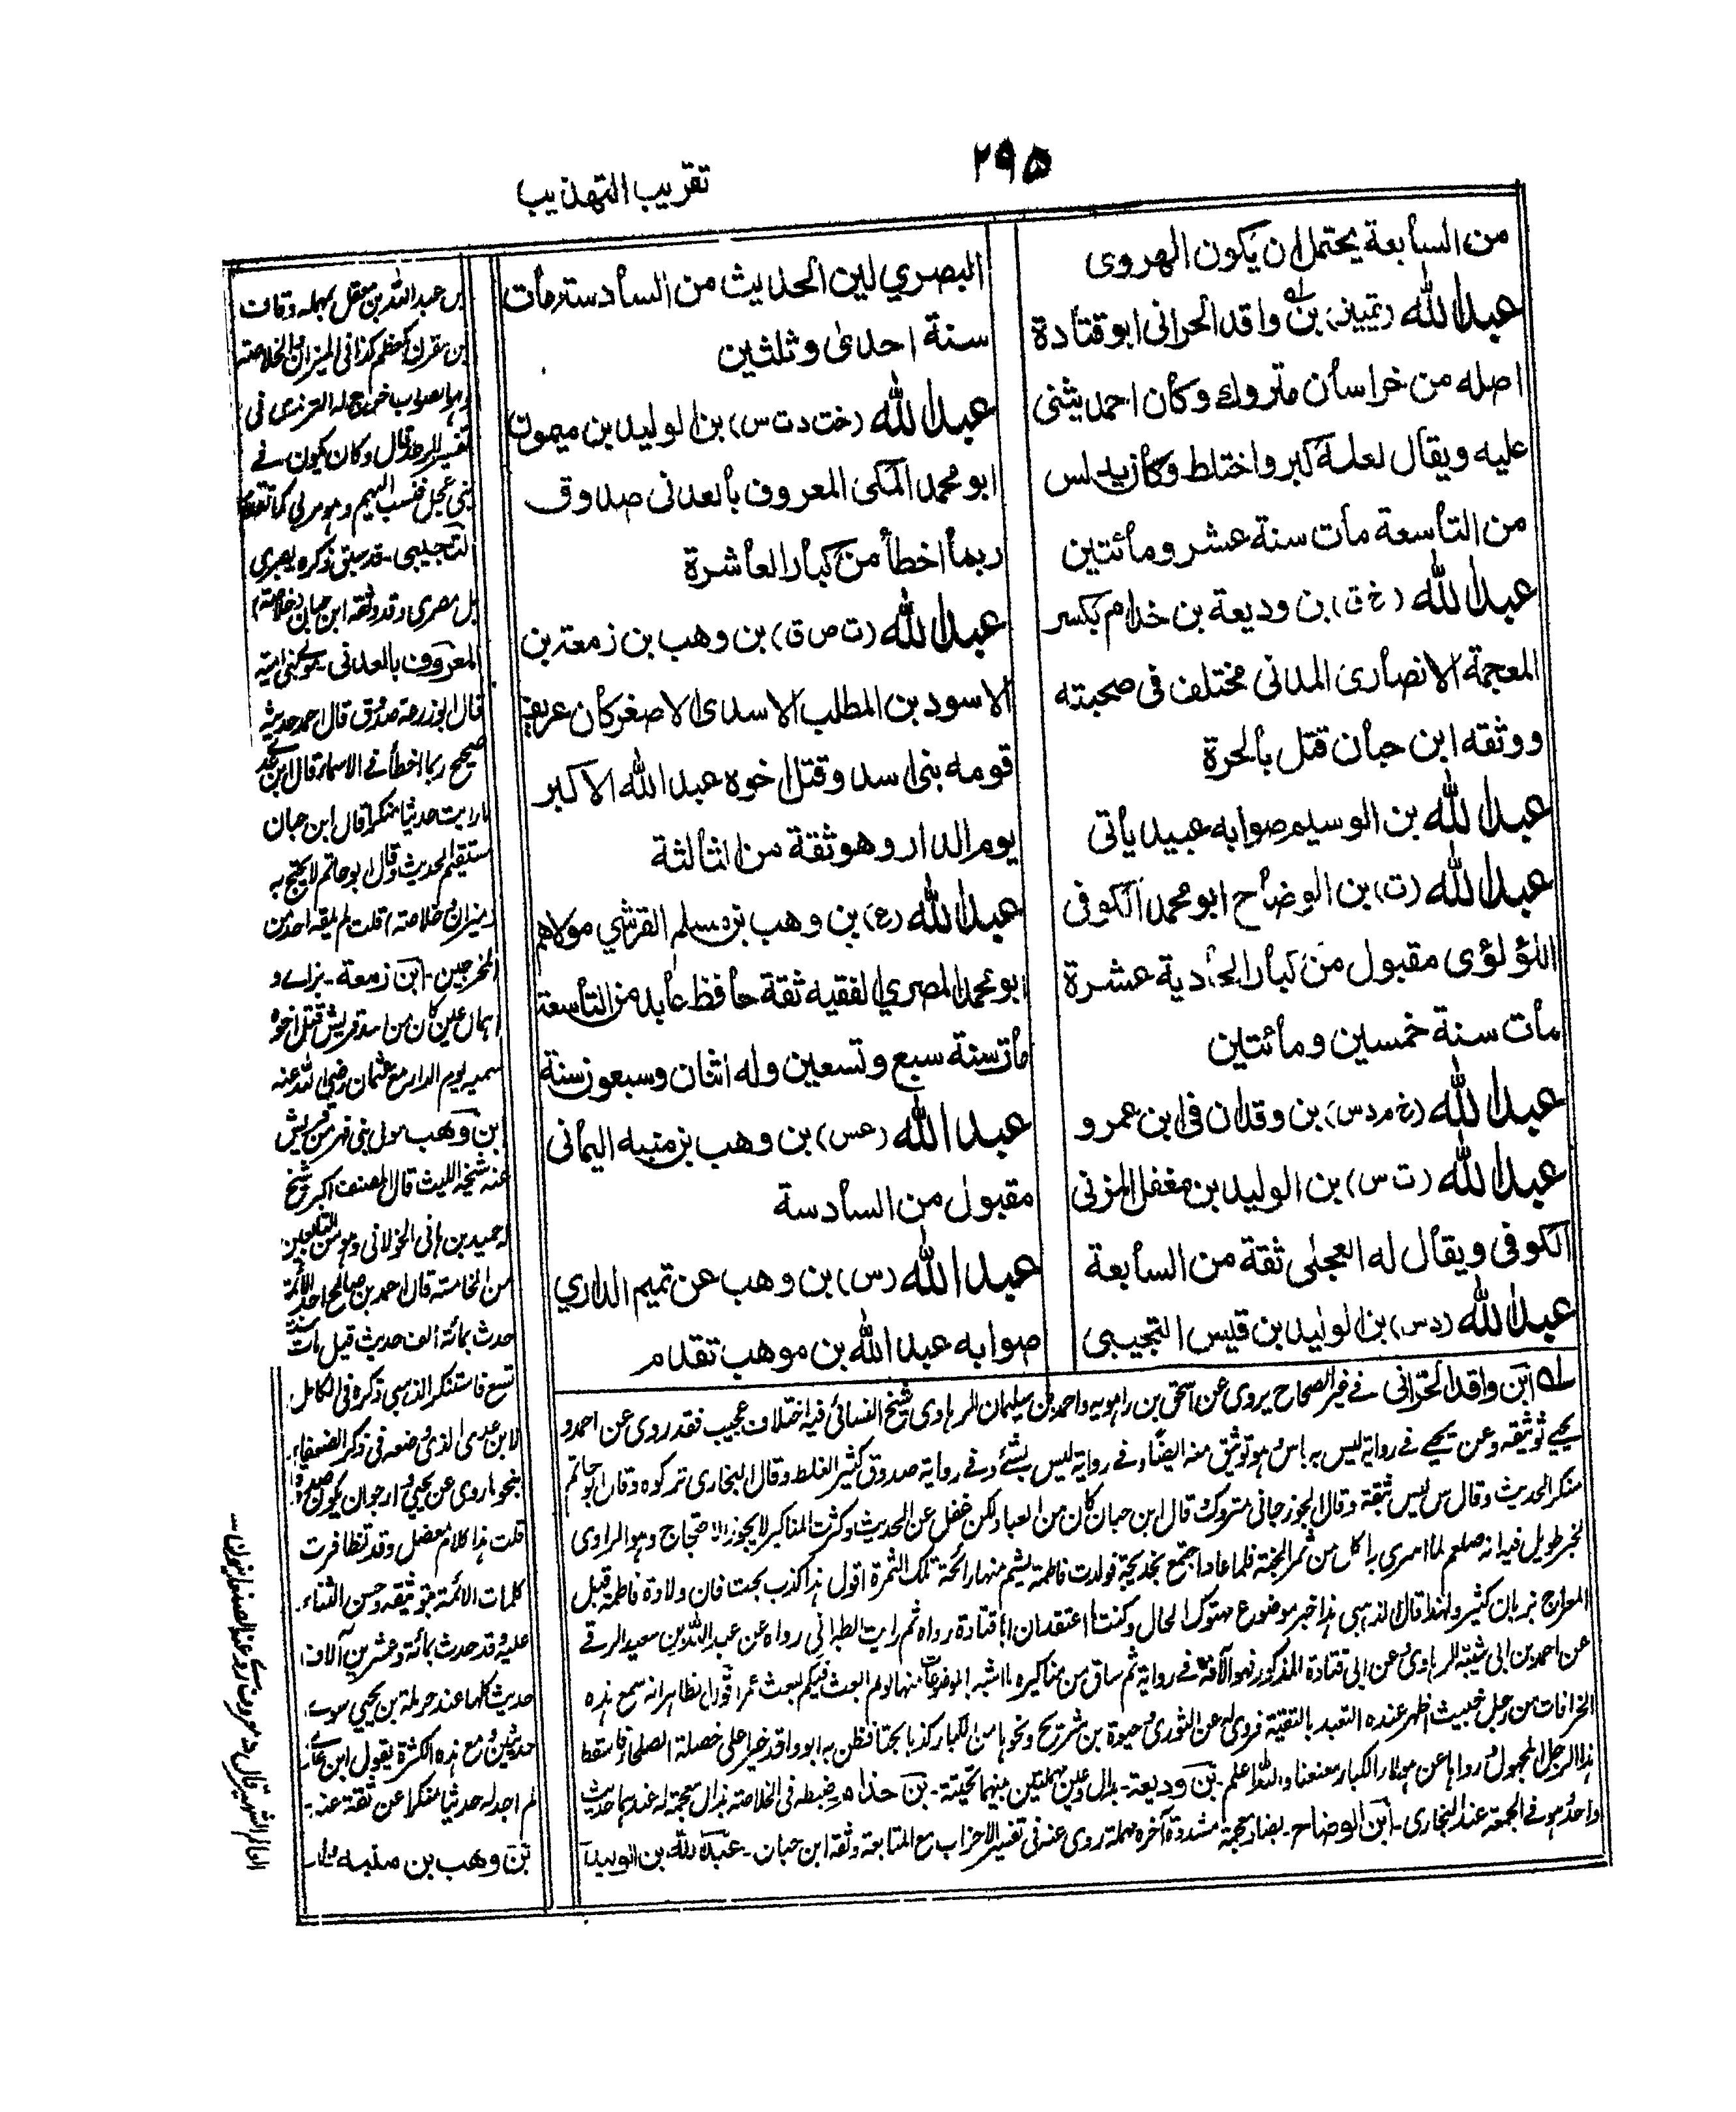 ٢٩٥
تقريب التهذيب
من السابعة يحتمل ان يكون الهروى
عبد الله (تمييز) بن واقد الحرانى ابو قتادة
اصله من خراسان متروك وكان احمد يثنى
عليه ويقال لعله كبر واختلط وكان يدلس
من التاسعة مات سنة عشر ومائتين
عبد الله (خ ق) بن وديعة بن خدام بكسر
المعجمة الانصارى المدنى مختلف فى صحبته
ووثقه ابن حبان قتل بالحرة
عبد الله بن الوسيم صوابه عبيد يأتى
عبد الله (ت) بن الوضاح ابو محمد الكوفى
اللؤلؤى مقبول من كبار الحادية عشرة
مات سنة خمسين ومائتين
عبد الله (خ م د س) بن وقدان فى ابن عمرو
عبد الله (ت س) بن الوليد بن مغفل المزنى
الكوفى ويقال له العجلى ثقة من السابعة
عبد الله (د س) بن الوليد بن قيس التجيبى
البصري لين الحديث من السادسة مات
سنة احدى وثلثين
عبد الله (خت د ت س) بن الوليد بن ميمون
ابو محمد المكى المعروف بالعدنى صدوق
ربما اخطأ من كبار العاشرة
عبد الله (ت ص ق) بن وهب بن زمعة بن
الاسود بن المطلب الاسدى الاصغر كان عريف
قومه بنى اسد وقتل اخوه عبد الله الاكبر
يوم الدار وهو ثقة من الثالثة
عبد الله (ع) بن وهب بن مسلم القرشي مولاهم
ابو محمد المصري الفقيه ثقة حافظ عابد من التاسعة
مات سنة سبع وتسعين وله اثنان وسبعون سنة
عبد الله (عس) بن وهب بن منبه اليمانى
مقبول من السادسة
عبد الله (س) بن وهب عن تميم الداري
صوابه عبد الله بن موهب تقدم
ابن واقد الحرانى فى غير الصحاح يروى عن اسحق بن راهويه واحمد بن سليمان الرهاوى شيخ النسائى فيه اختلاف عجيب فقد روى عن احمد و
يحيے توثيقه وعن يحيے فے رواية ليس به باس وهو توثيق منه ايضا وفے رواية ليس بشئ وفے رواية صدوق كثير الغلط وقال البخارى تركوه وقال ابو حاتم
منكر الحديث وقال س ليس بثقة وقال الجوزجانى متروك قال ابن حبان كان من العباد لكن غفل عن الحديث وكثرت المناكير لا يجوز الاحتجاج وهو الراوى
لخبر طويل فيه انه صلعم لما اسرى به اكل من ثمر الجنة فلما عاد اجتمع بخديجة فولدت فاطمة يشم منها رائحة تلك الثمرة اقول هذا كذب بحت فان ولادة فاطمة قبل
المعراج بزمان كثير ولهذا قال الذهبى هذا خبر موضوع مهتوك الحال وكنت اعتقد ان ابا قتادة رواه ثم رايت الطبرانى رواه عن عبد الله بن سعيد الرقے
عن احمد بن ابى شيبة الرهاوى عن ابى قتادة المذكور فهو الآفة فے رواية ثم ساق من مناكيره ما اشبه الموضوعات منها لو لم ابعث فيكم لبعث عمر اقول الظاهر انه سمع هذه
الخرافات من رجل خبيث اظهر عنده التعبد بالتقية فروى له عن الثورى وحيوة بن شريح ونحوها من الكبار كذبا بحتا فظن به ابو واقد خيرا على خصلة الصلحاء فاسقط
هذا الرجل المجهول ورواها عن هؤلاء الكبار معنعنا والله اعلم - بن وديعة - بدال وعين مهملتين بينهما تحتية - بن خذام ضبطه فى الخلاصة بذال معجمة له عندهما حديث
واحد وهو فے الجمعة عند البخارى - ابن الوضاح - بضاد معجمة مشددة آخره مهملة روى عنه فى تفسير الاحزاب مع المتابعة وثقه ابن حبان - عبد الله بن الوليد
بن عبد الله بن معقل بمهملة وقاف
بن مقرن كمعظم كذا فى الميزان والخلاصة
وهو الصواب خرج له الترمذى فى
تفسير الرعد قال وكان يكون فے
بنى عجل فنسب اليهم وهو مزنى كما تقدم
التجيبى - قد سبق ذكره بصرى
بل مصرى وقد وثقه ابن حبان (خلاصة)
المعروف بالعدنى -
قال ابو زرعة صدوق قال احمد حديثه
صحيح ربما اخطأ فے الاسماء قال ابن عدے
ما رايت حديثا منكرا قال ابن حبان
مستقيم الحديث وقال ابو حاتم لا يحتج به
(ميزان وخلاصة) قلت لم يبقه احد من
المخرجين - ابن زمعة - بزاے و
اهمال عين كان من اسد قريش قتل اخوه
سميه يوم الدار مع عثمان رضى الله عنه
ابن وهب مولى بنى فهر من قريش
عنه شيخه الليث قال المصنف اكبر شيخ
له حميد بن هانى الخولانى وهو من التابعين
من الخامسة قال احمد بن صالح احد الائمة
حدث بمائة الف حديث قيل مات سنة
تسع فاستنكر الذهبى ذكره فى الكامل
لابن عدى الذى وضعه فى ذكر الضعفاء
بنحو ما روى عن يحيى ارجو ان يكون صدوقا
قلت هذا كلام معضل وقد تظافرت
كلمات الائمة بتوثيقه وحسن الثناء
عليه وقد حدث بمائة وعشرين آلاف
حديث كلها عند حرملة بن يحيى سوے
حديثين ومع هذه الكثرة يقول ابن عدے
لم اجد له حديثا منكرا عن ثقة عنه
بن وهب بن منبه